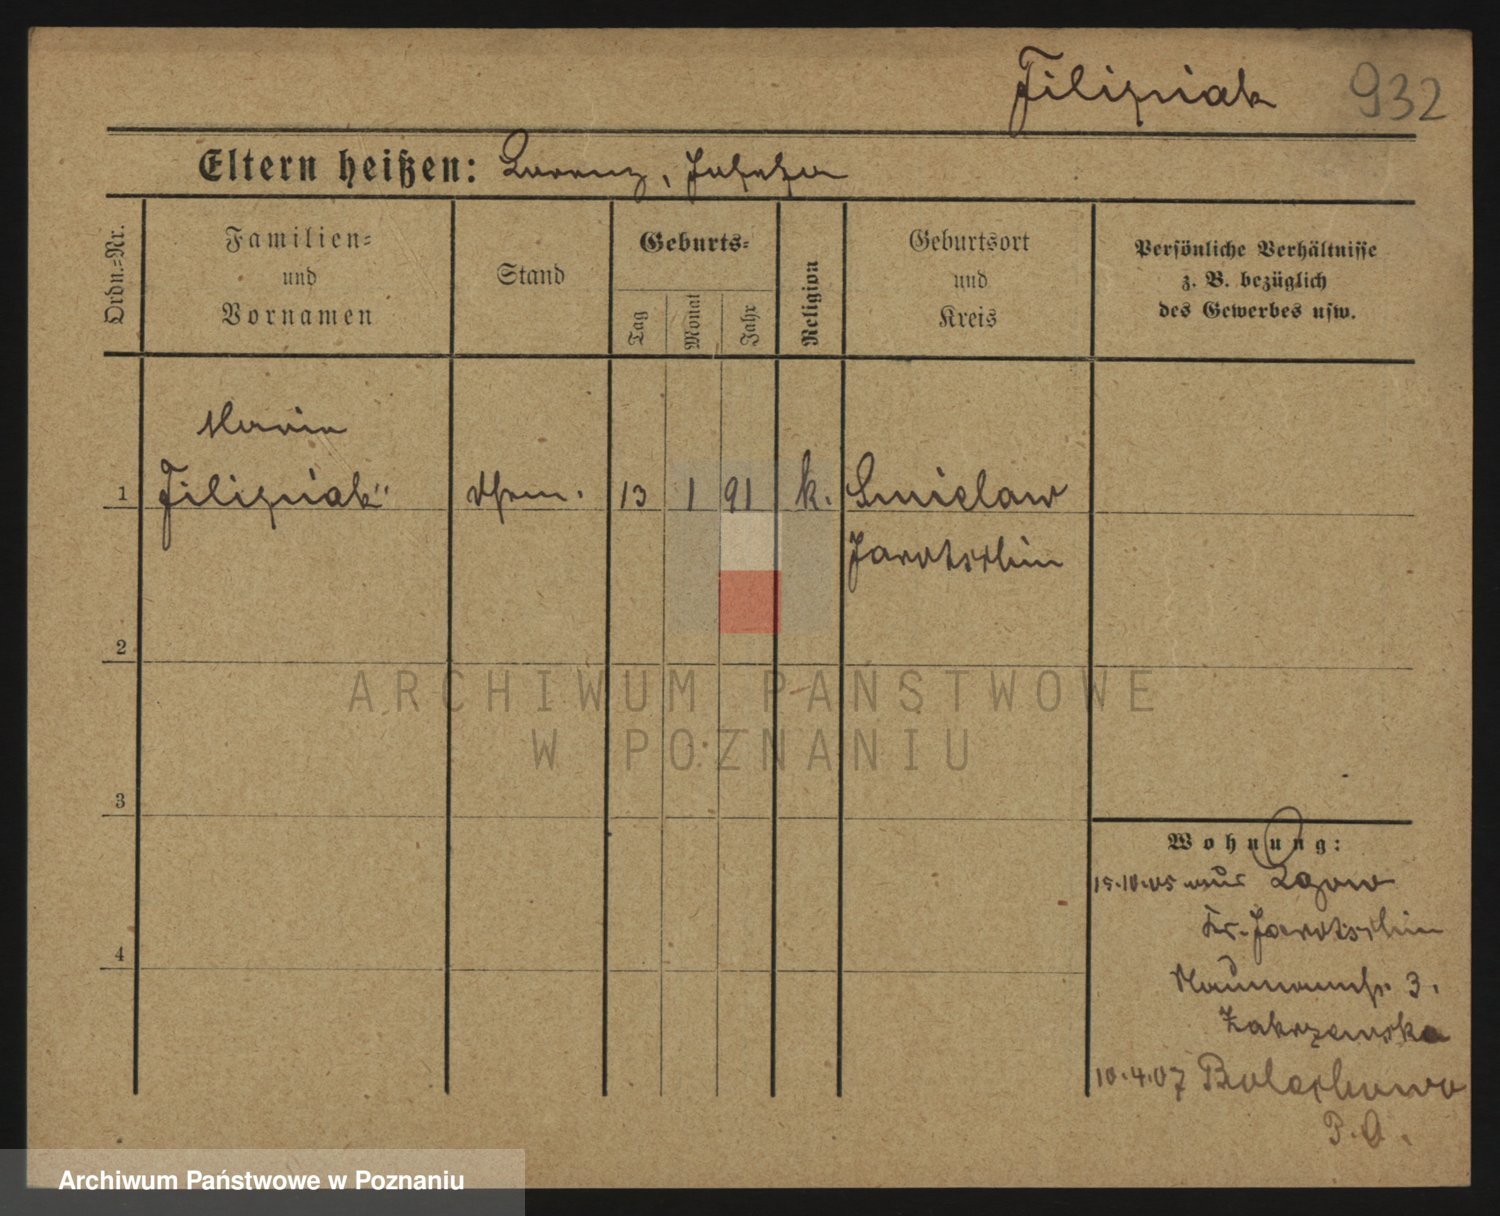 Filipiak 932
Eltern heißen: Lorenz, Josefa
Ordn.=Nr.
Familien=
und
Vornamen
Stand
Geburts=
Tag
Monat
Jahr
Religion
Geburtsort
und
Kreis
Persönliche Verhältnisse
z. B. bezüglich
des Gewerbes usw.
Maria
1 Filipiak 13 1 91 k. Smielow
Jarotschin
2
ARCHIWUM PAŃSTWOWE
W POZNANIU
3
Wohnung:
15.10.05 aus Lgow
Kr. Jarotschin
4
Naumannstr. 3.
Zakrzewska
10.4.07 Bolechowo
P. O.
Archiwum Państwowe w Poznaniu